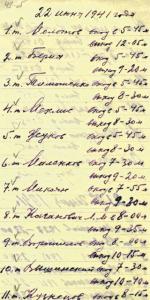 22 июня 1941 года
1. т. Молотов вход 5-45 м
выход 12-05 м
2. т. Берия вход 5-45 м
выход 9-20 м
3. т. Тимошенко вход 5-45 м
выход 8-30 м
4. т. Мехлис вход 5-45 м
выход 8-30 м
5. т. Жуков вход 5-45 м
выход 8-30 м
6. т. Маленков 7-30 м
выход 9-20 м
7. т. Микоян вход 7-55 м
выход 9-30 м
8. т. Каганович Л.М. в 8-00 м
выход 9-35 м
9. т. Ворошилов 8-00 м
выход 10-15 м
10. т. Вышинский 7-30 м
выход 10-40 м
11. т. Кузнецов